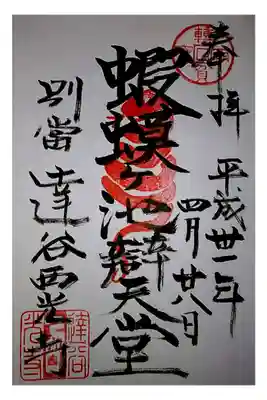 奉拝
平成卅一年
四月廿八日
蝦蟆ヶ池辯天堂
別當達谷西光寺